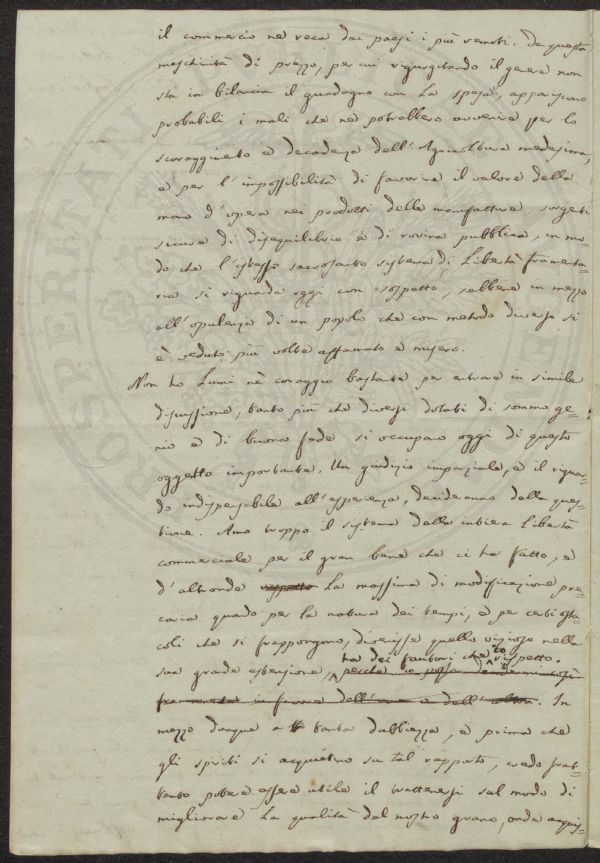 il commercio ne reca dai paesi i più remoti. Da questa
meschinità di prezzo, per cui rigurgitando il genere non
sta in bilancia il guadagno con la spesa, appariscono
probabili i mali che ne potrebbero avvenire per lo
scoraggimento e decadenza dell'Agricoltura medesima,
e per l'impossibilità di favorire il valore della
mano d'opera nei prodotti delle manifatture, sorgenti
sicure di disequilibrio e di rovina pubblica, in mo-
do che l'istesso sacrosanto sistema di Libertà frumenta-
ria si riguarda oggi con sospetto, sebbene in mezzo
all'opulenza di un popolo che con metodo diverso si
è veduto più volte affamato e misero.
Non ho Lumi nè coraggio bastante per entrare in simile
discussione, tanto più che diversi dotati di sommo ge-
nio e di buona fede si occupano oggi di questo
oggetto importante. Un giudizio imparziale, e il riguar-
do indispensabile all'esperienza, decideranno della ques-
tione. Amo troppo il sistema della intiera libertà
commerciale per il gran bene che ci ha fatto, e
d'altronde rispetto la massima di modificazione pre-
caria quando per la natura dei tempi, e per certi osta-
coli che si frappongono, divenisse quello vizioso nella
sua grande estensione, ha dei fautori che io rispetto.
perchè io possa
in favore dell' e dell' . In
mezzo dunque a tanta dubbiezza, e prima che
gli spiriti si acquietino su tal rapporto, credo frat-
tanto potere essere utile il trattenersi sul modo di
migliorare la qualità del nostro grano, onde acquis-